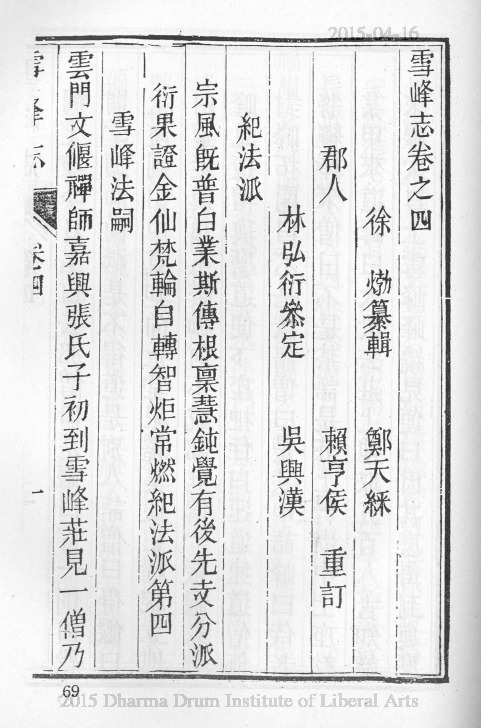 2015-04-16
雪峰志卷之四
徐𤊹纂輯 鄭天綵
郡人 賴亨侯 重訂
林弘衍叅定 吳興漢
紀法派
宗風旣普白業斯傳根禀慧鈍覺有後先支分派
衍果證金仙梵輪自轉智炬常燃紀法派第四
雪峰法嗣
雲門文偃禪師嘉興張氏子初到雪峰莊見一僧乃
雪峰志 卷四 一
69
2015 Dharma Drum Institute of Liberal Arts